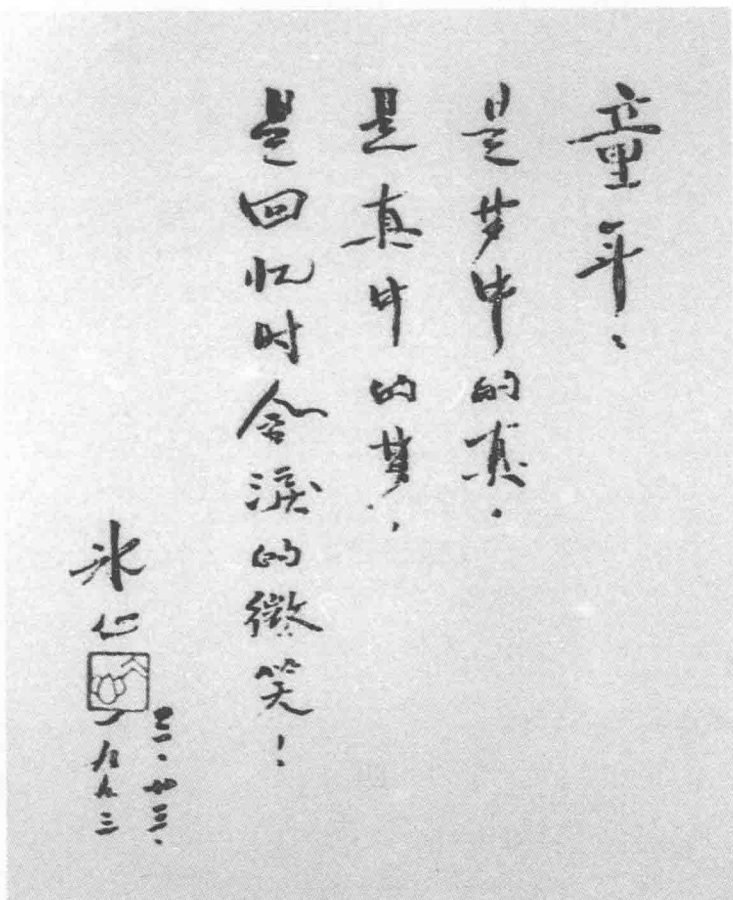 童年、
是梦中的真、
是真中的梦、
是回忆时含淚的微笑！
冰心
一九九三
廿三、